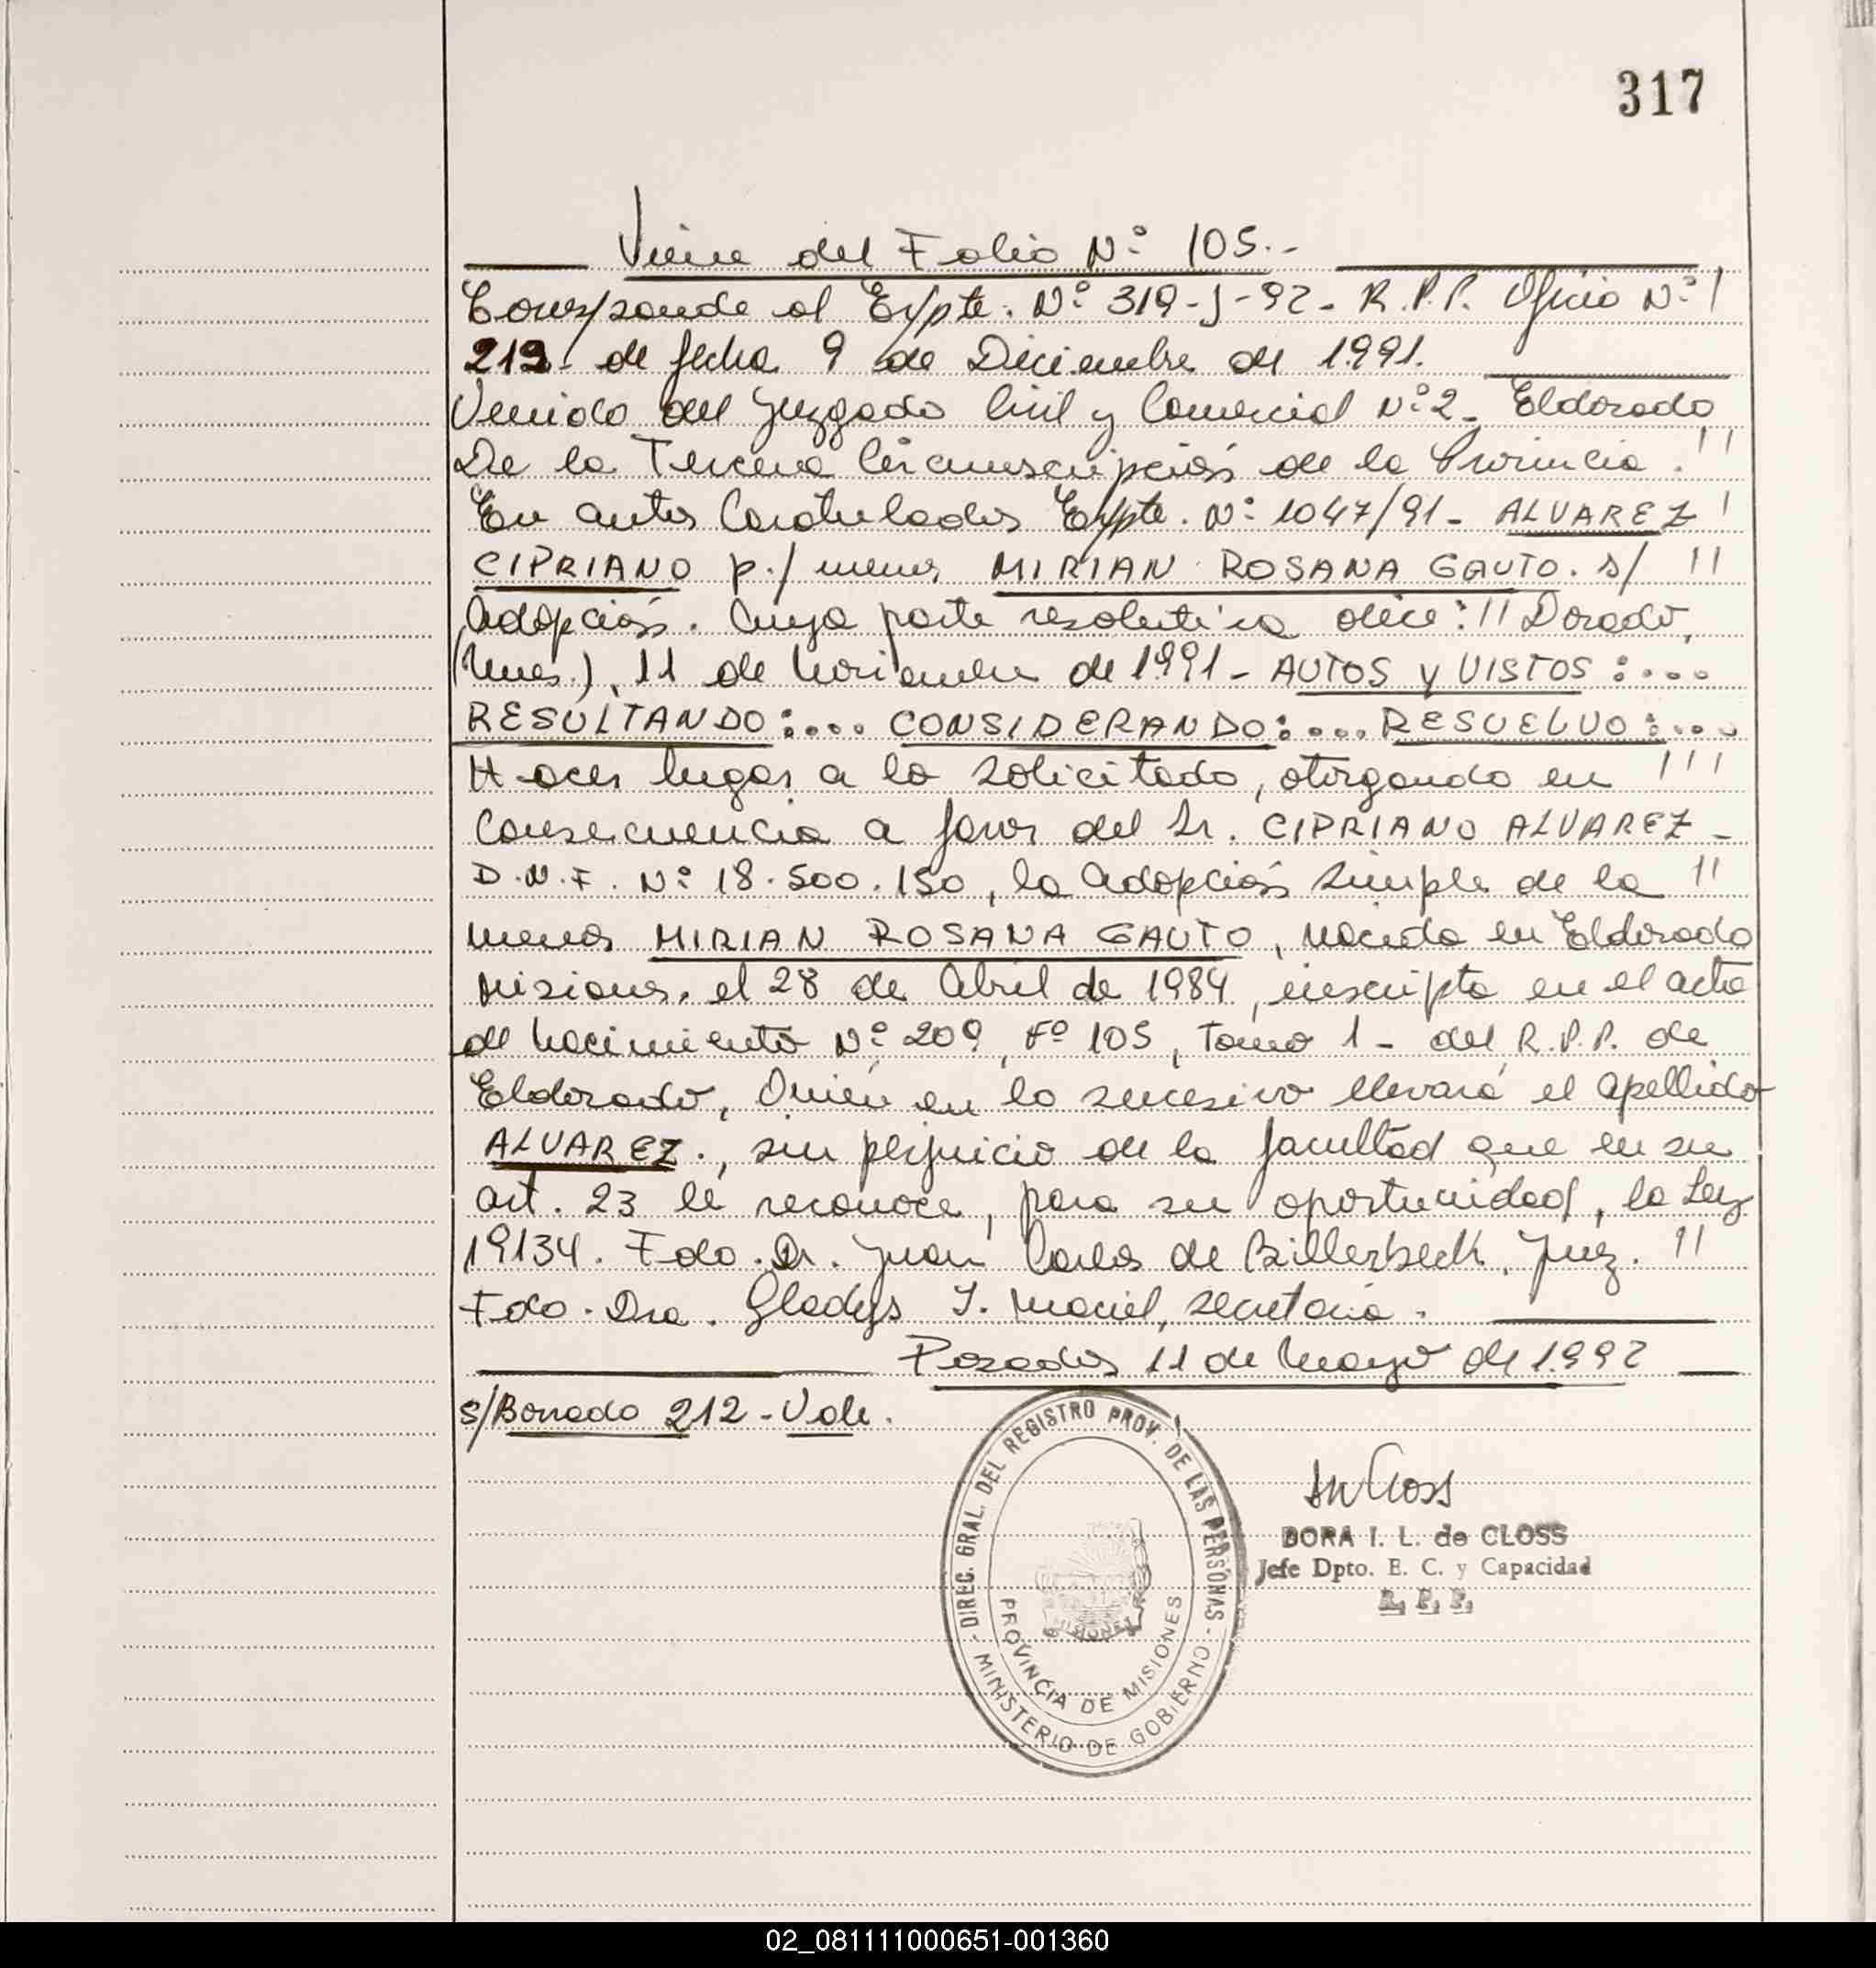 317
Viene del Folio Nº 105.-
Corresponde al Expte. Nº 319-J-92- R.P.P. Oficio Nº !
212- de fecha 9 de Diciembre de 1991.
Venido del Juzgado Civil y Comercial Nº 2- Eldorado
De la Tercera Circunscripción de la Provincia. !!
En autos Caratulados Expte. Nº 1047/91- ALVAREZ !
CIPRIANO p./ menor MIRIAN ROSANA GAUTO. s/ !!
Adopción. Cuya parte resolutiva dice: !! Dorado,
(Mnes.), 11 de Noviembre de 1991- AUTOS y VISTOS:....
RESULTANDO:.... CONSIDERANDO:.... RESUELVO:...
Hacer lugar a lo solicitado, otorgando en !!!
Consecuencia a favor del Sr. CIPRIANO ALVAREZ-
D.N.I. Nº 18.500.150, la adopción simple de la !!
menor MIRIAN ROSANA GAUTO, nacida en Eldorado
Misiones, el 28 de Abril de 1984, inscripta en el acta
de nacimiento Nº 209, Fº 105, Tomo 1- del R.P.P. de
Eldorado, Quién en lo sucesivo llevará el apellido
ALVAREZ., sin perjuicio de la facultad que en su
art. 23 le reconoce, para su oportunidad, la Ley
19134. Fdo. Dr. Juan Carlos de Billerbeck, Juez. !!
Fdo. Dra. Gladys I. Maciel, secretaria.
Posadas 11 de Mayo de 1992
s/Borrado 212-Vale.
- DIREC. GRAL. DEL REGISTRO PROV. DE LAS PERSONAS -
MINISTERIO DE GOBIERNO
PROVINCIA DE MISIONES
MISIONES
DORA I. L. de CLOSS
Jefe Dpto. E. C. y Capacidad
R. P. P.
02_081111000651-001360